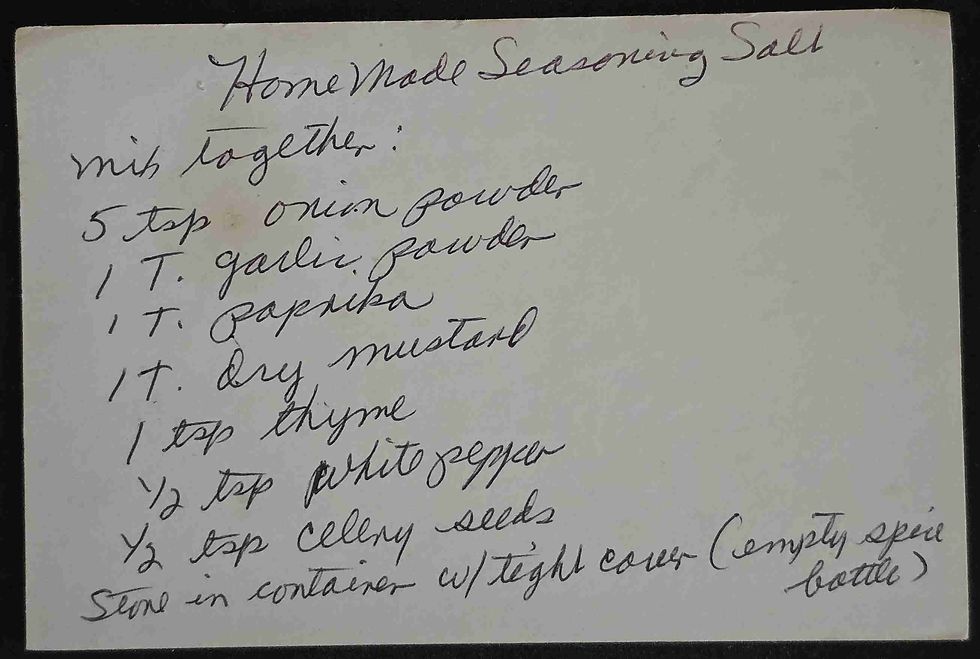 HomeMade Seasoning Salt
mix together:
5 tsp onion powder
1 T. garlic powder
1 T. paprika
1 T. dry mustard
1 tsp thyme
1/2 tsp white pepper
1/2 tsp celery seeds
Store in container w/ tight cover (empty spice
bottle)